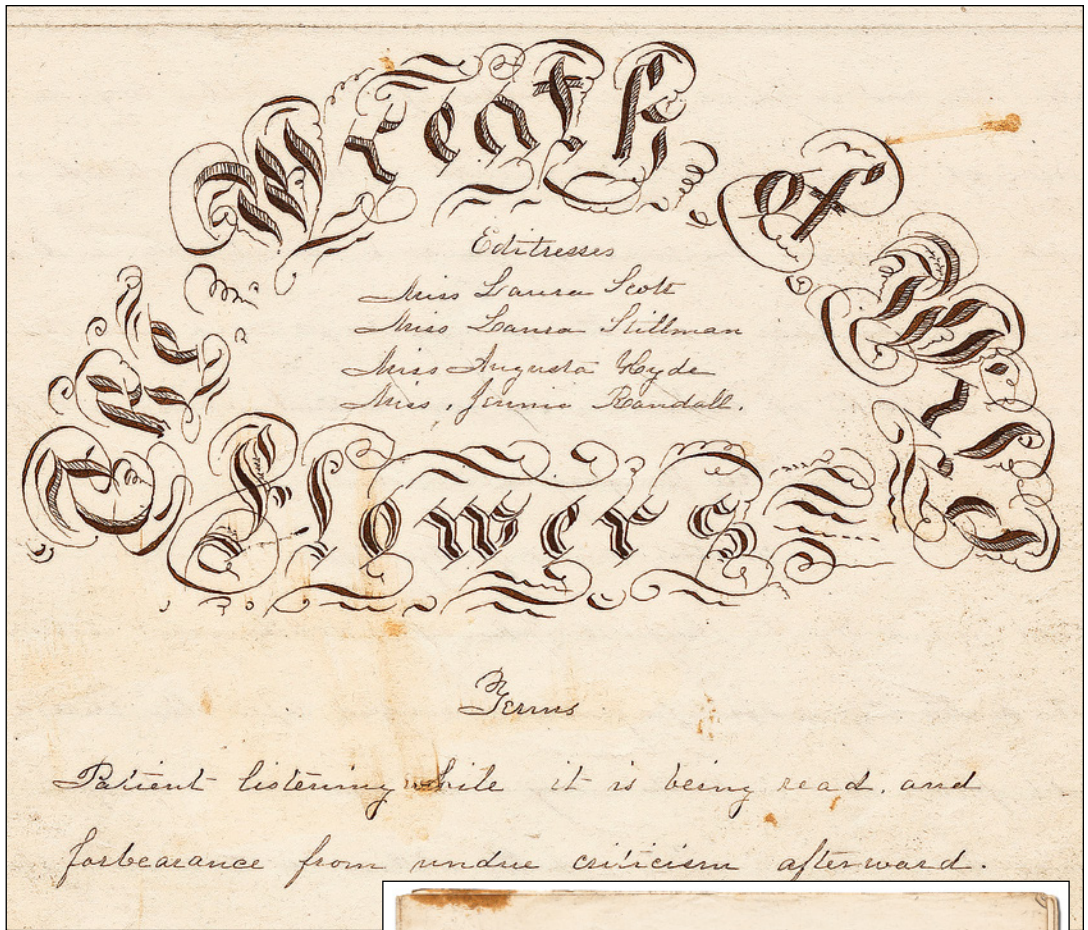 The Wreath of Wild
Flowers
Editresses
Miss Laura Scott
Miss Laura Stillman
Miss Augusta Hyde
Miss. Jennie Randall.
Terms
Patient listening while it is being read, and
forbearance from undue criticism afterward.